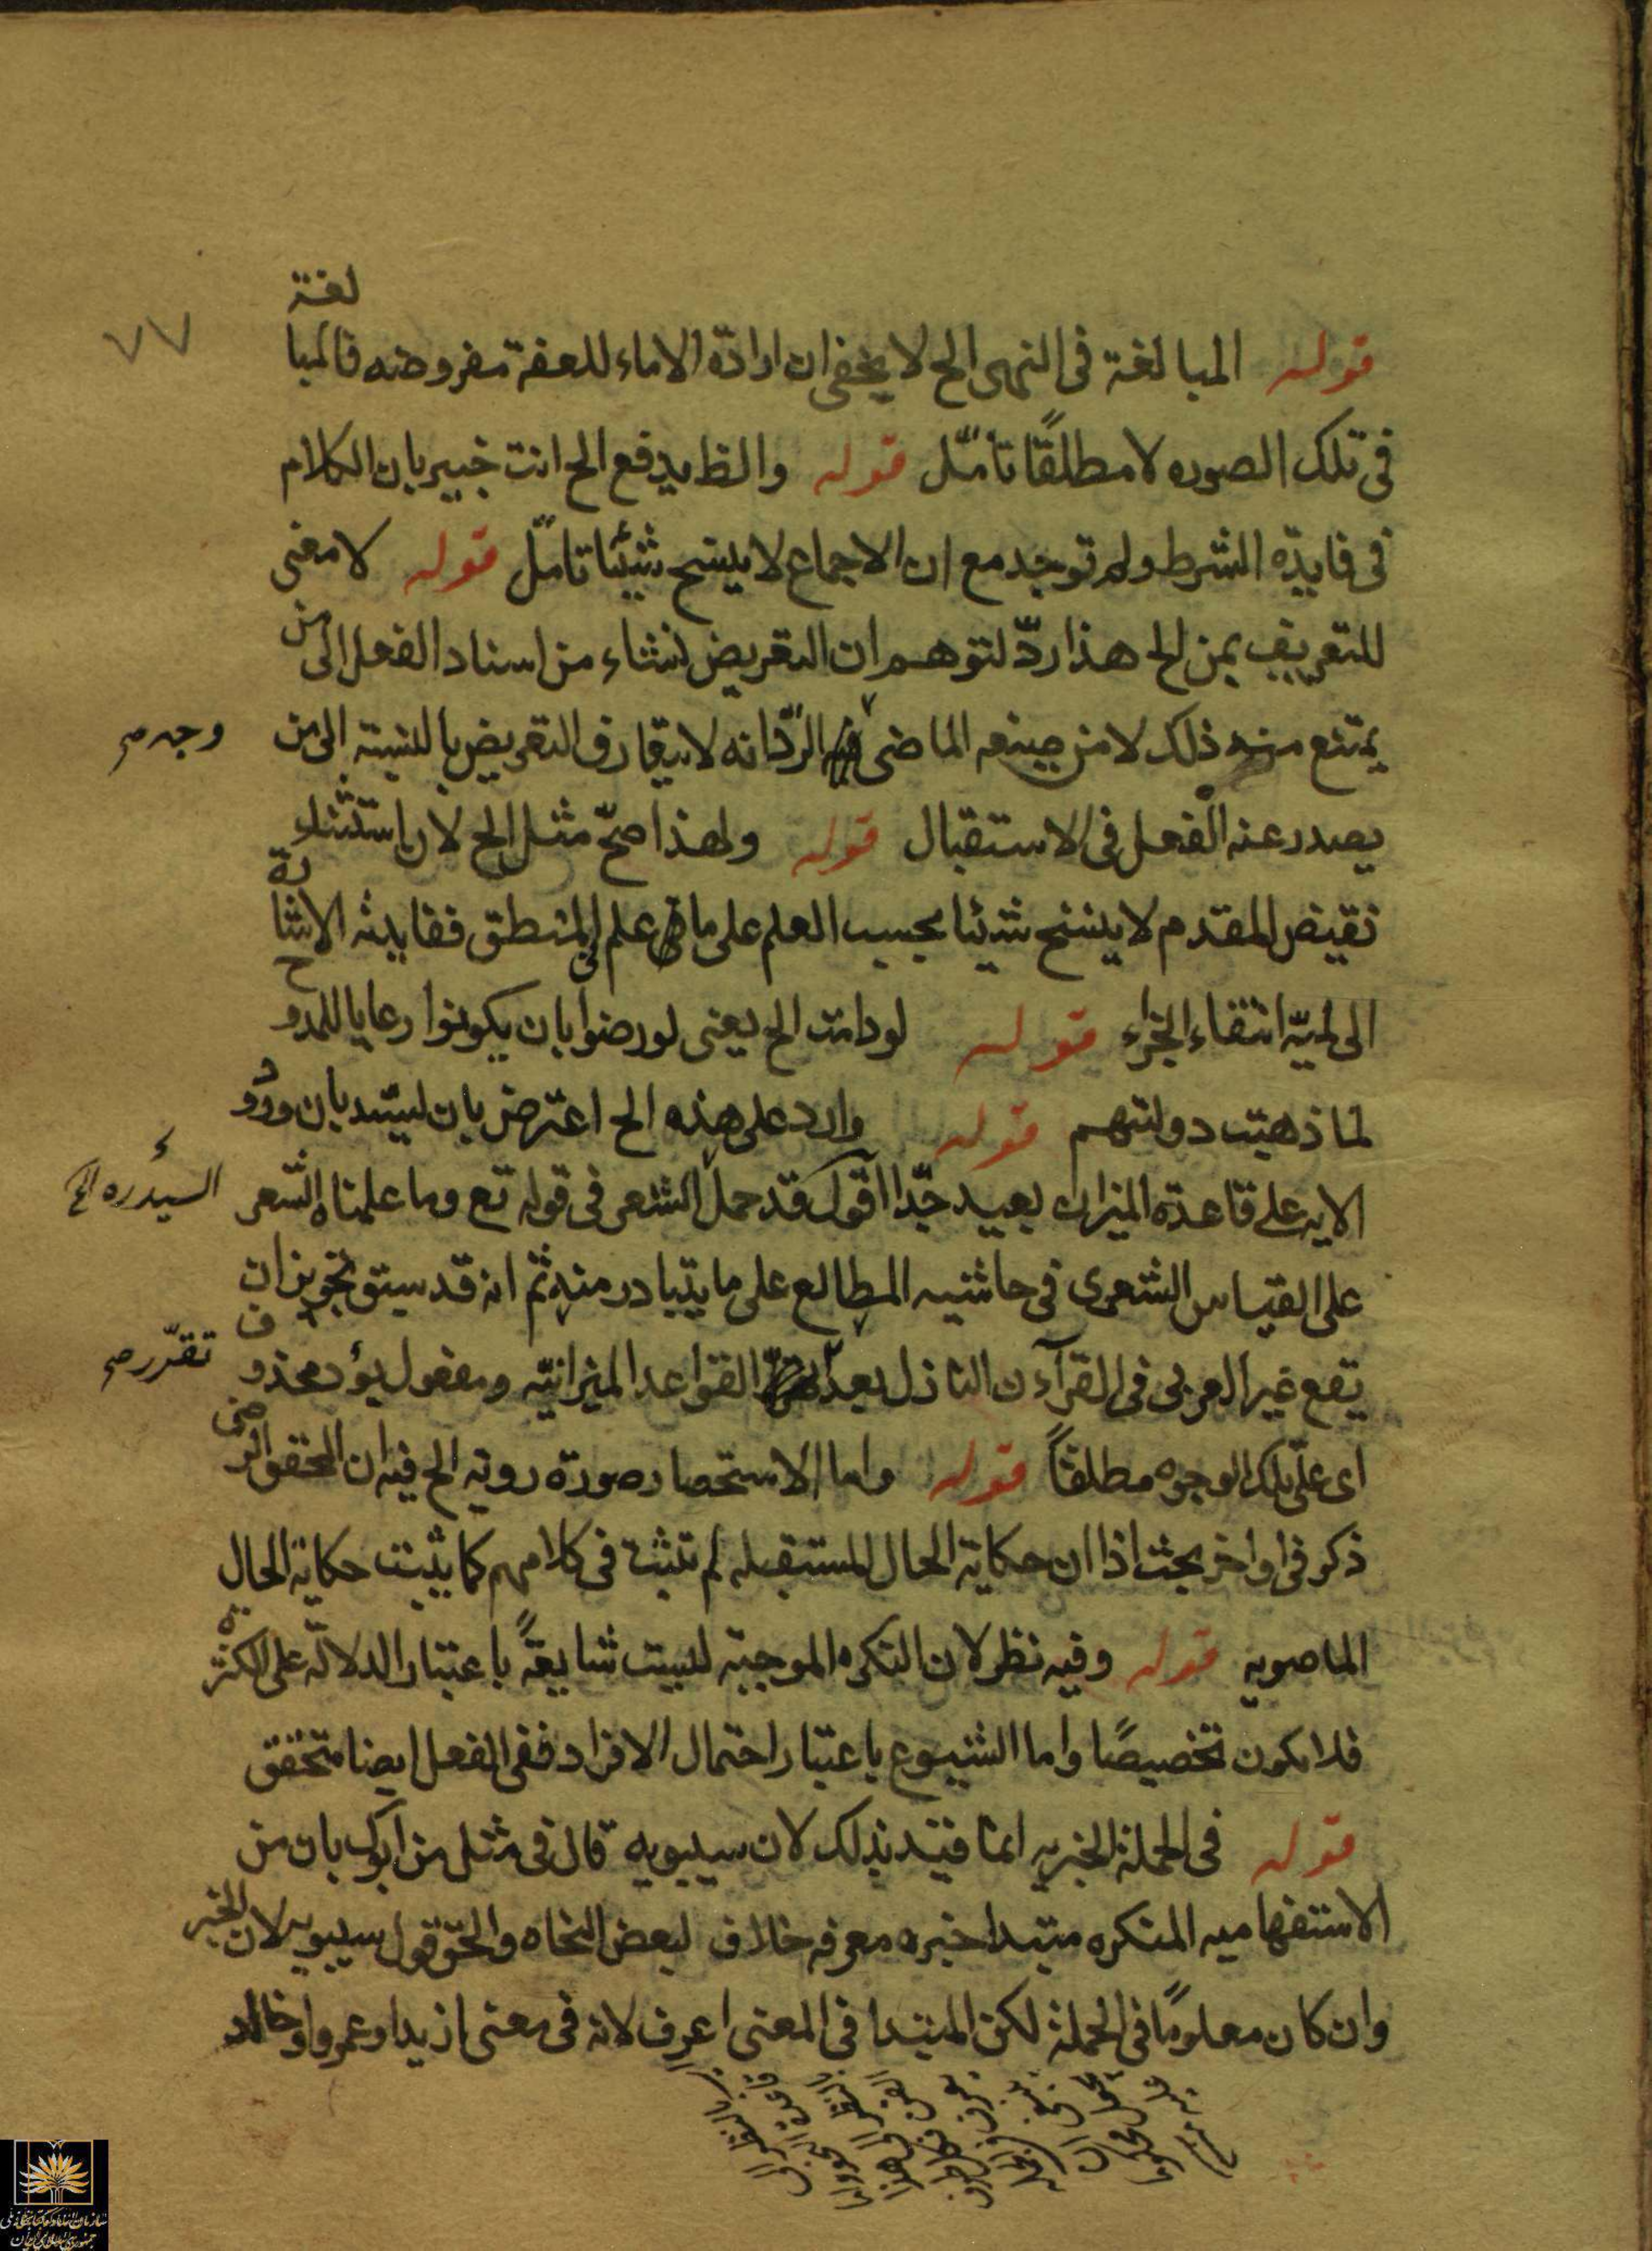 لغة
قوله المبالغة فى النهى الخ لا يخفى ان ارادة الاماء للعفة مفروضه فالمبا
٧٧
فى تلك الصوره لا مطلقًا تأمّل قوله والظ يدفع الخ انت خبير بان الكلام
فى فايدة الشرط ولم توجد مع ان الاجماع لا ينسخ شيئا تامّل قوله لا معنى
للتعريض بمن الخ هذا ردّ لتوهم ان التعريض نشاء من اسناد الفعل الى من
يمتنع منه ذلك لا من صيغه الماضى الردّ انه لا يتعارف التعريض بالنسبة الى من
وجه صح
يصدر عنه الفعل فى الاستقبال قوله ولهذا صحّ مثل الخ لان استثناء
نقيض المقدم لا ينتج شيئا بحسب العلم على ما علم فى المنطق ففايدته الاشا
رة
الى لميّة انتفاء الجزاء قوله لو دامت الخ يعنى لو رضوا بان يكونوا رعايا للمدو
ح
لما ذهبت دولتهم قوله وارد على هذه الخ اعترض بان السيد بان ورو
د
الايه على قاعدة الميزان بعيد جدّا اقول قد حمل الشعر فى قوله تع وما علمناه الشعر
السيد ره
على القياس الشعرى فى حاشيه المطالع على ما يتبادر منه ثم انه قد سبق تجويز ان
يقع غير العربى فى القرآن النازل بعد القواعد الميزانيّه ومفعول يؤد محذو
ف
تقرّر صح
اى على تلك الوجوه مطلقاً قوله واما الاستحضار صورة رويه الخ فيه ان المحقق الر
ضى
ذكر فى اواخر بحث اذا ان حكاية الحال المستقبله لم تثبت فى كلامهم كما يثبت حكاية الحال
الماضويه قوله وفيه نظر لان النكره الموجبة ليست شايعةً باعتبار الدلالة على الكثر
ة
فلا يكون تخصيصًا واما الشيوع باعتبار احتمال الافراد ففى الفعل ايضا متحقق
قوله فى الجملة الخبريه انما قيّد بذلك لان سيبويه قال فى مثل من ابوك بان من
الاستفهاميه المنكره مبتدا خبره معرفه خلاف لبعض النحاه والحق قول سيبويه لان الخبر
وان كان معلومًا فى الجملة لكن المبتدا فى المعنى اعرف لانه فى معنى ازيد او عمرو او خالد